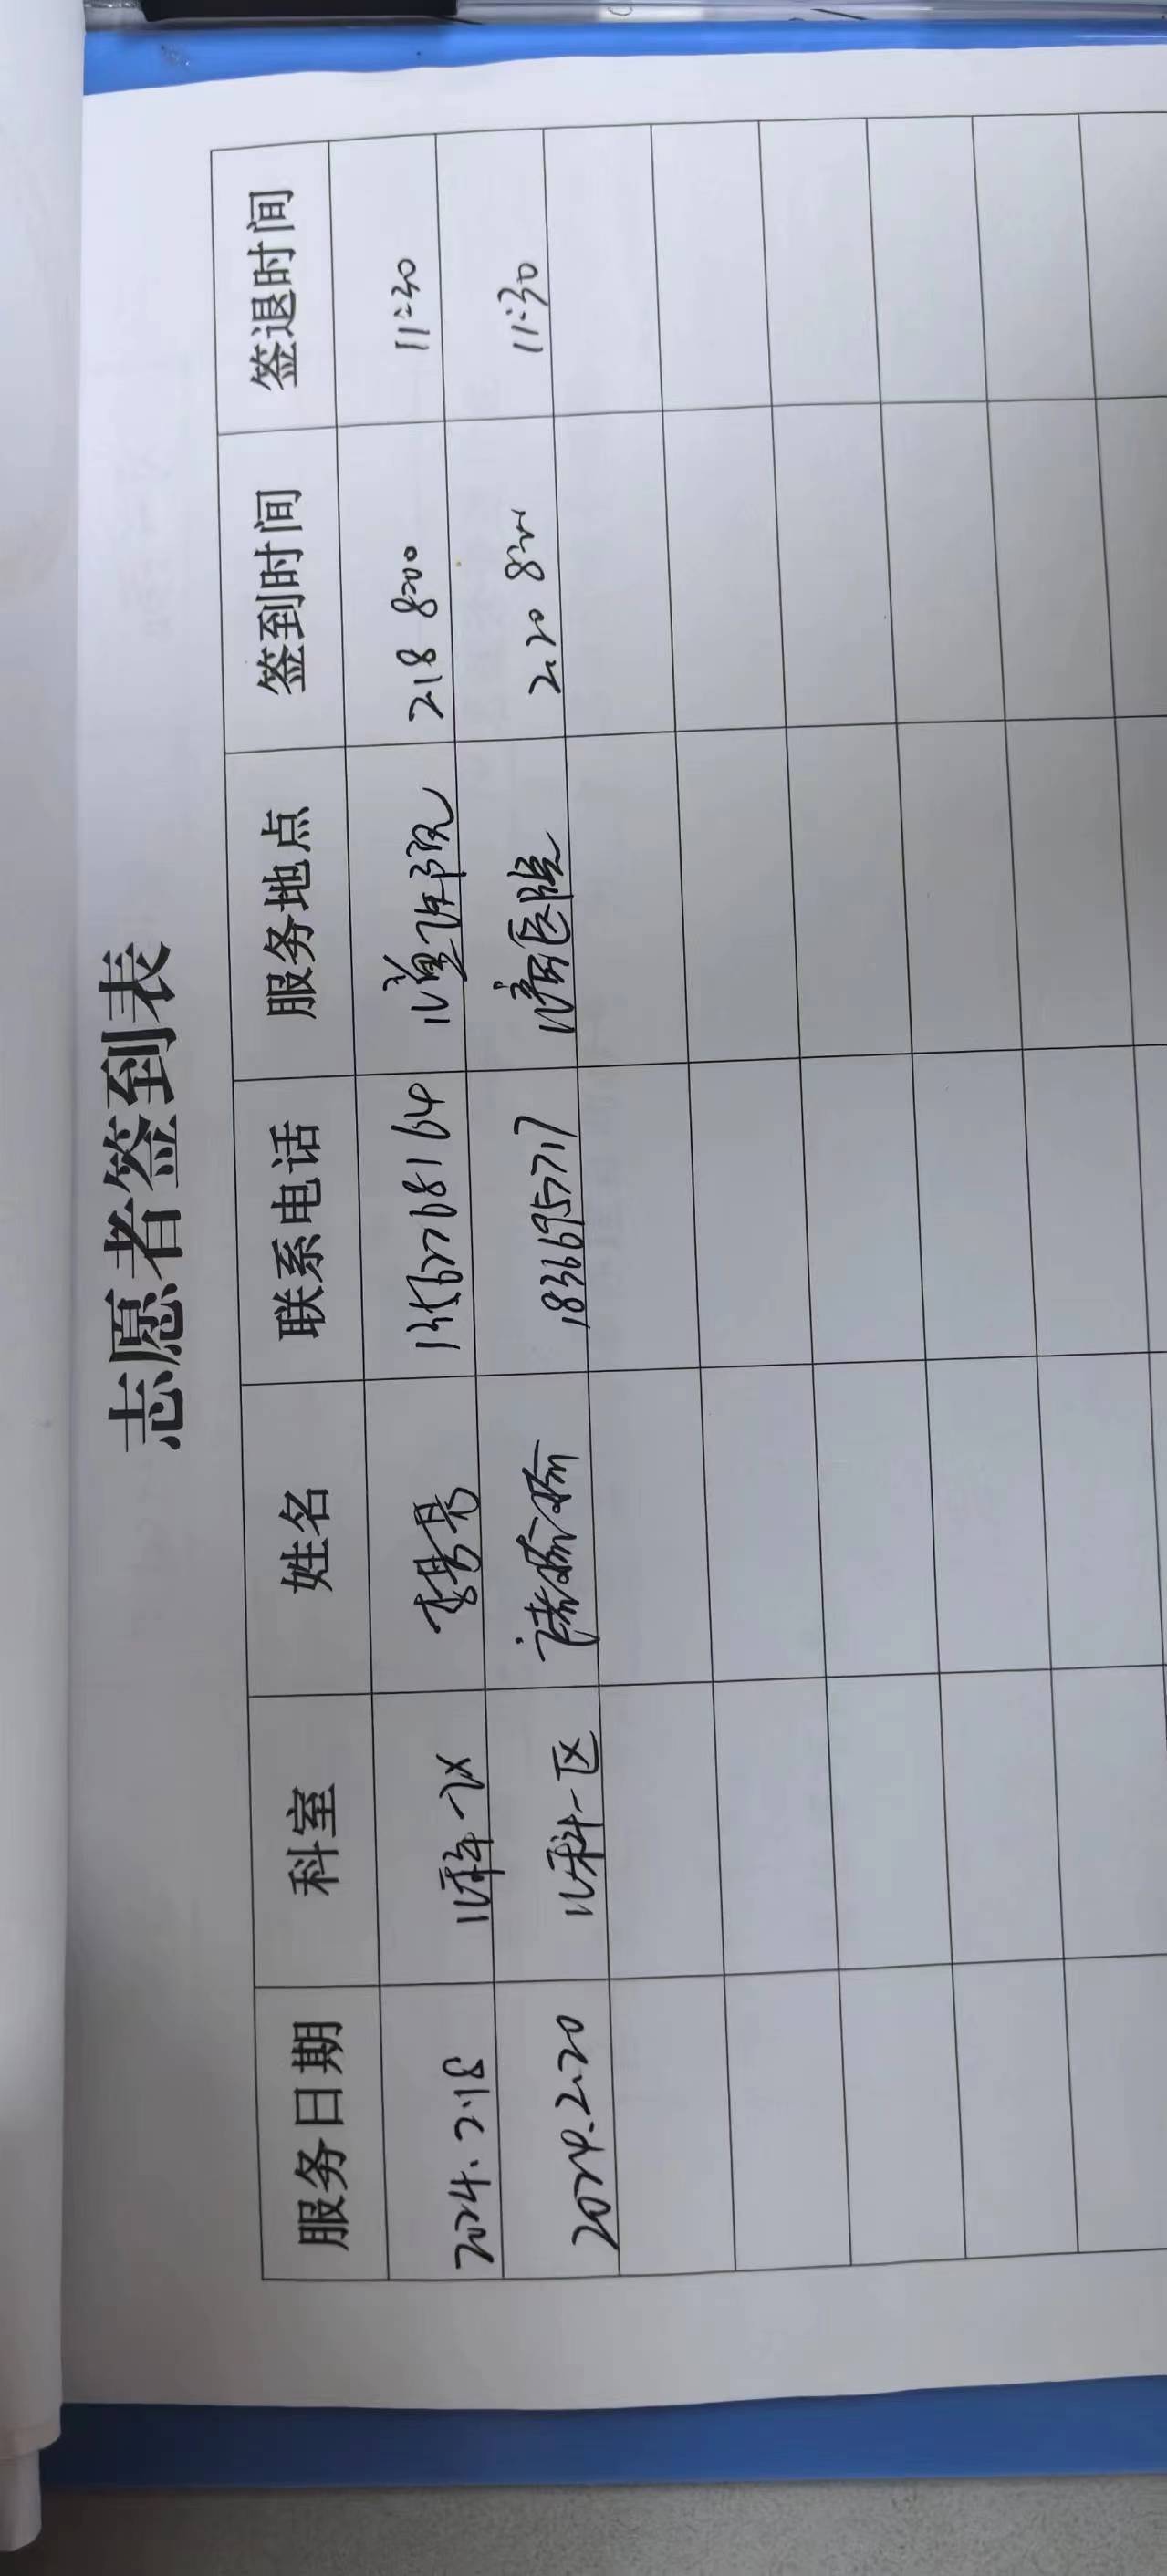 志愿者签到表
服务日期 科室 姓名 联系电话 服务地点 签到时间 签退时间
2024.2.18 儿科一区 13562768164 儿童 2.18 8:00 11:30
2024.2.20 儿科一区 18366695717 医院 2.20 11:30